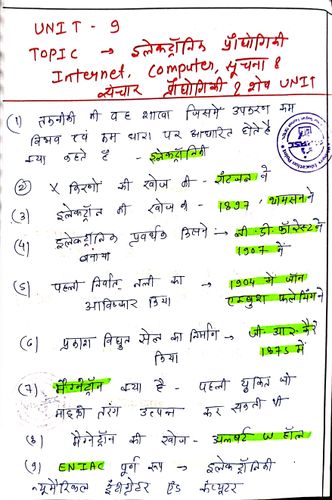 UNIT - 9
TOPIC → इलेक्ट्रॉनिक प्रौद्योगिकी
Internet, Computer, सूचना &
संचार प्रौद्योगिकी & शेष UNIT
(1) तकनीकी की वह शाखा जिसमें उपकरण कम
विभव एवं कम धारा पर आधारित होते हैं
क्या कहते है - इलेक्ट्रॉनिकी
② X किरणों की खोज की - रोंटजन ने
(3) इलेक्ट्रॉन की खोज की - 1897, थामसन ने
(4) इलेक्ट्रॉनिक प्रवर्धक किसने → ली डी फॉरेस्ट ने
बनाया 1907 में
(5) पहली निर्वात नली का → 1904 में जॉन
आविष्कार किया एम्ब्रुश फ्लेमिंग ने
(6) प्रकाश विद्युत सेल का निर्माण → जी. आर. कैरे
किया 1875 में
(7) मैग्नेट्रॉन क्या है - पहली युक्ति जो
माइक्रो तरंग उत्पन्न कर सकती थी
(8) मैग्नेट्रॉन की खोज - अल्बर्ट W हॉल
(9) ENIAC पूर्ण रूप → इलेक्ट्रॉनिकी
न्यूमेरिकल इंटीग्रेटर एंड कंप्यूटर